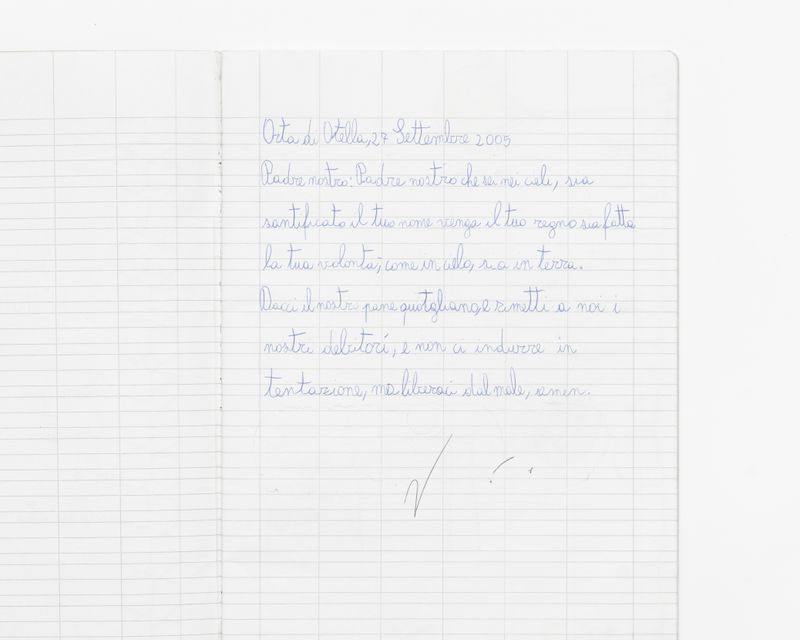 Orta di Atella, 27 Settembre 2005
Padre nostro: Padre nostro che sei nei celi, sia
santificato il tuo nome venga il tuo regno sia fatta
la tua volontà, come in celo, sia in terra.
Dacci il nostro pane quotgliano, e rimetti a noi i
nostri debitori, e non ci indurre in
tentazione, ma liberaci dal male, amen.